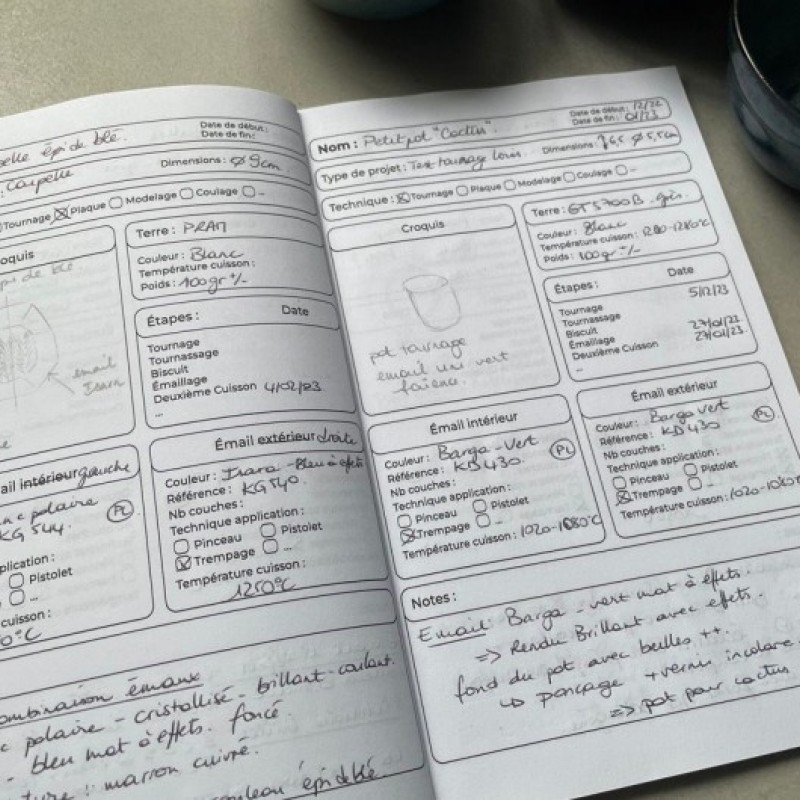 elle épi de blé.
Date de début :
Date de fin :
Coupelle
Dimensions : ø 9cm
Tournage Plaque Modelage Coulage ...
oquis
épi de blé
email
Isara
Terre : PRAI
Couleur : Blanc
Température cuisson :
Poids : 100gr +/-
Étapes : Date
Tournage
Tournassage
Biscuit
Émaillage
Deuxième Cuisson 4/02/23
...
ail intérieur gauche
polaire
KG 544. PL
plication :
Pistolet
...
cuisson :
0°C
Émail extérieur droite
Couleur : Isara - Bleu à effets
Référence : KG540.
Nb couches :
Technique application :
Pinceau Pistolet
Trempage ...
Température cuisson :
1250°C
ombinaison émaux
c polaire - cristallisé - brillant - coulant.
- bleu mat à effets. foncé.
ture : marron cuivré.
épi de blé.
Nom : Petit pot "Cactus".
Date de début : 12/22
Date de fin : 01/23
Type de projet : Test tournage Dimensions : 6,5 ø 5,5cm
Technique : Tournage Plaque Modelage Coulage ...
Croquis
pot tournage
email uni vert
faïence.
Terre : GTS700B. grès.
Couleur : Blanc
Température cuisson : 1200-1280°C
Poids : 100gr +/-
Étapes : Date
Tournage 5/12/23
Tournassage
Biscuit
Émaillage
Deuxième Cuisson
...
Émail intérieur
Couleur : Barga - Vert
Référence : KD430. PL
Nb couches :
Technique application :
Pinceau Pistolet
Trempage ...
Température cuisson : 1020-1080°C
Émail extérieur
Couleur : Barga vert
Référence : KD430 PL
Nb couches :
Technique application :
Pinceau Pistolet
Trempage ...
Température cuisson : 1020-1080°
Notes :
Email Barga - vert mat à effets.
=> Rendu Brillant avec effets.
fond du pot avec bulles ++.
↳ ponçage + vernis incolore.
=> pot pour cactus